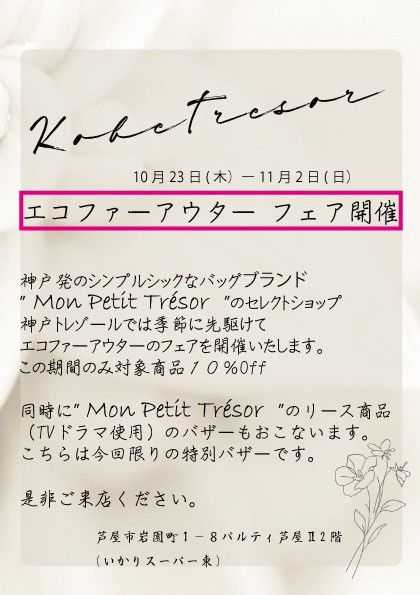 Kobetresor
10月23日(木）－11月2日(日）
エコファーアウター フェア開催
神戸発のシンプルシックなバッグブランド
" Mon Petit Trésor "のセレクトショップ
神戸トレゾールでは季節に先駆けて
エコファーアウターのフェアを開催いたします。
この期間のみ対象商品１０%0ff
同時に" Mon Petit Trésor "のリース商品
（TVドラマ使用）のバザーもおこないます。
こちらは今回限りの特別バザーです。
是非ご来店ください。
芦屋市岩園町１－８パルティ芦屋Ⅱ2階
(いかりスーパー東)